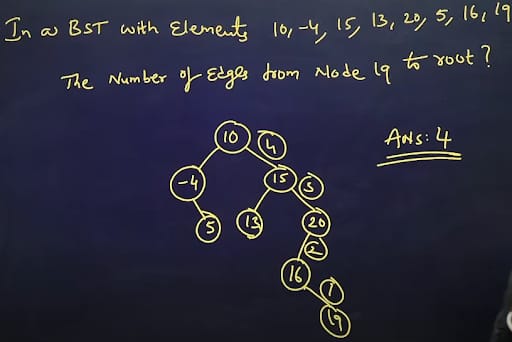 In a BST with Elements 10, -4, 15, 13, 20, 5, 16, 19
The Number of Edges from Node 19 to root?
Ans: 4
10 4
-4 15 3
5 13 20
2
16 1
19